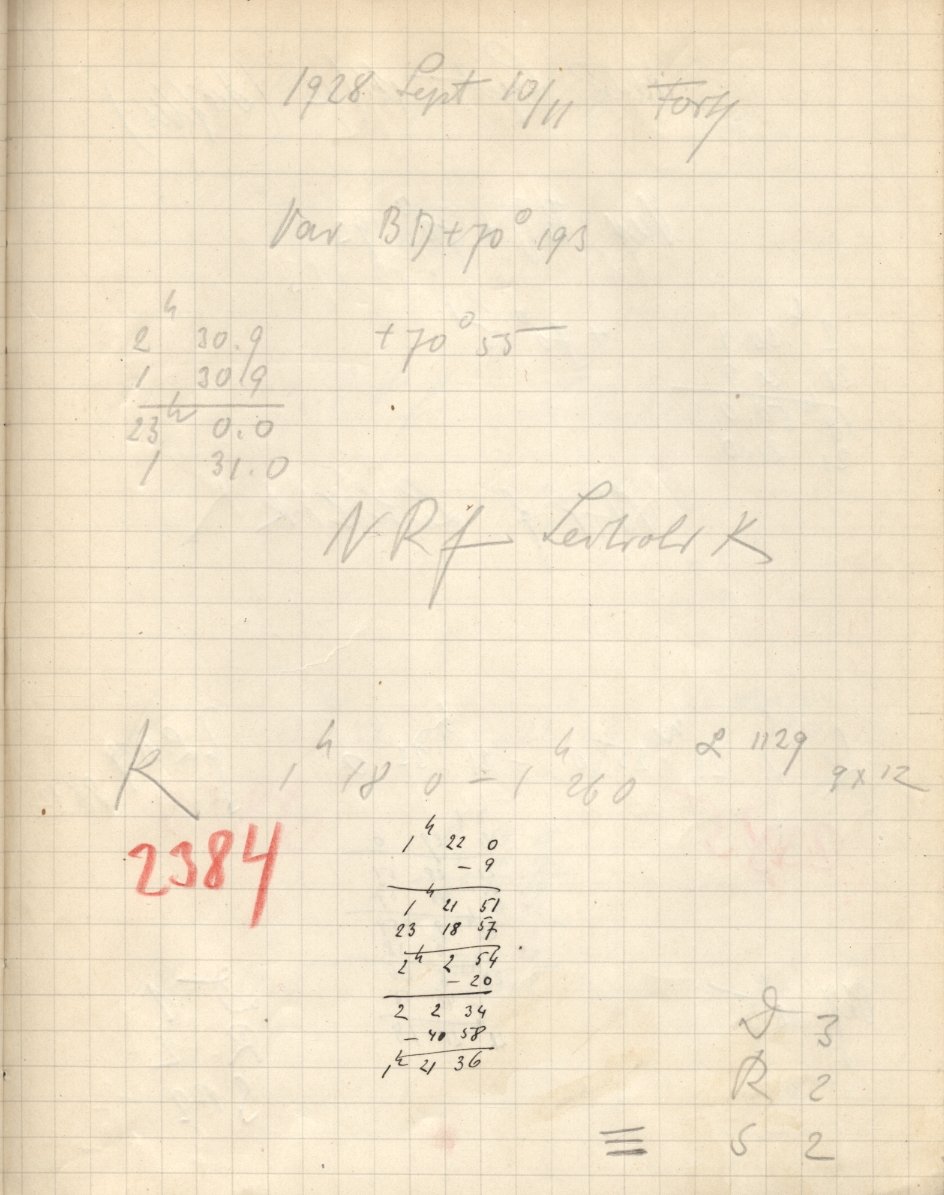 1928 Sept 10/11 Forts
Var BD+70° 193
2ʰ 30.9 +70° 55
1 30.9
23ʰ 0.0
1 31.0
NRf Leitrohr K
K 1ʰ 18 0 = 1ʰ 26 0 L 1129 9x12
2384
1ʰ 22 0
- 9
1ʰ 21 51
23 18 57
2ʰ 2 54
- 20
2 2 34
- 40 58
1ʰ 21 36
D 3
R 2
≡ S 2